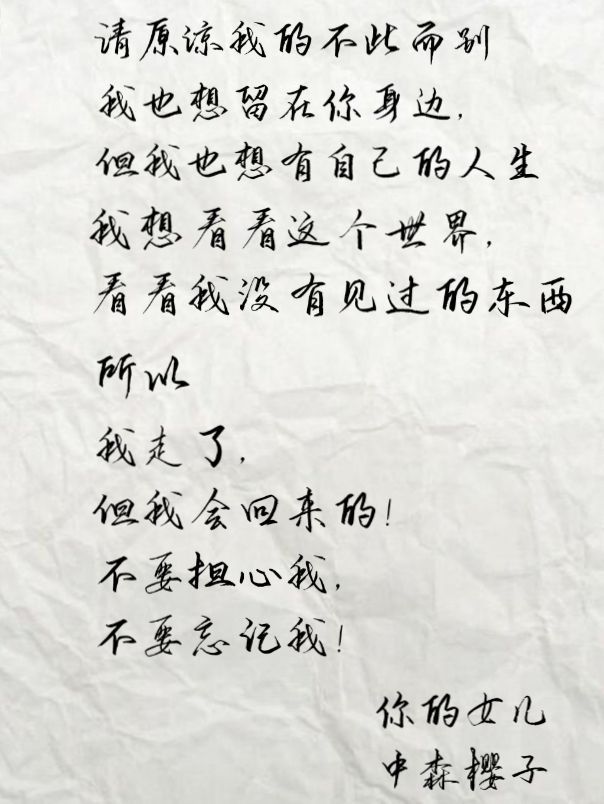 请原谅我的不此而别
我也想留在你身边,
但我也想有自己的人生
我想看看这个世界,
看看我没有见过的东西
所以
我走了,
但我会回来的!
不要担心我,
不要忘记我!
你的女儿
中森樱子